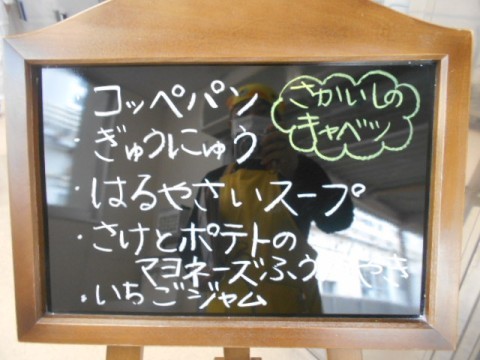 コッペパン
・ぎゅうにゅう
・はるやさいスープ
・さけとポテトの
マヨネーズふうみやき
・いちごジャム
さかいしの
キャベツ